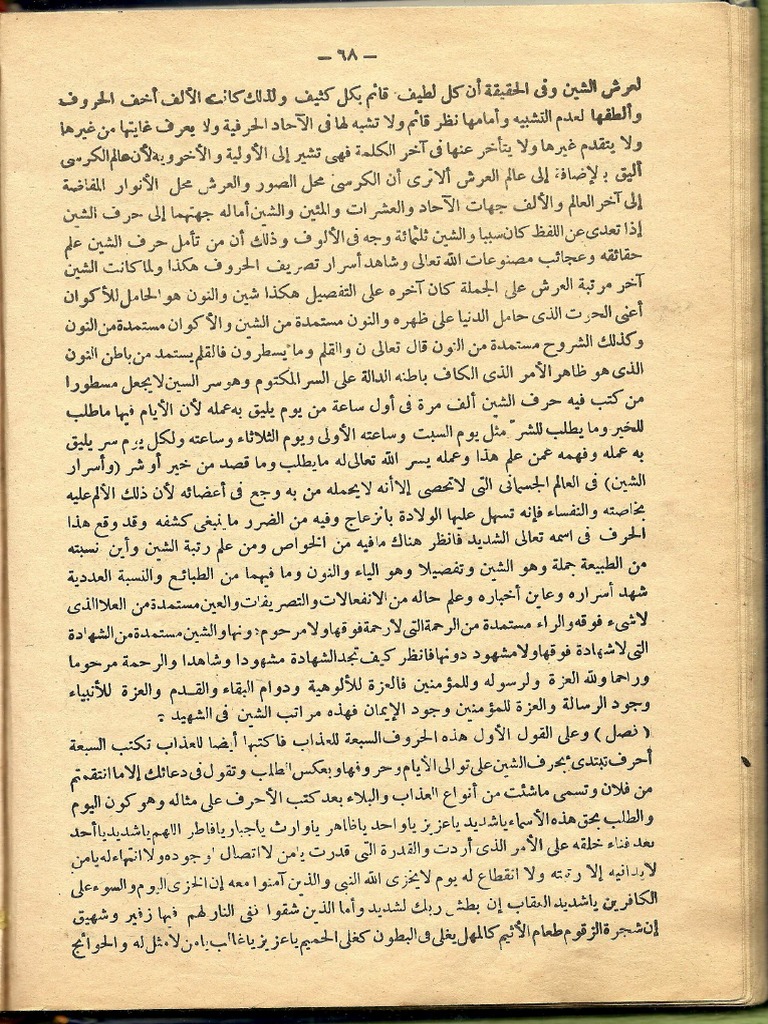 — ٦٨ —
لعرش الشين وفى الحقيقة أن كل لطيف قائم بكل كثيف ولذلك كانت الألف أخف الحروف
وألطفها لعدم التشبيه وأمامها نظر قائم ولا تشبه لها فى الآحاد الحرفية ولا يعرف غايتها من غيرها
ولا يتقدم غيرها ولا يتأخر عنها فى آخر الكلمة فهى تشير إلى الأولية والأخروية لأن عالم الكرسى
أليق بلإضافة إلى عالم العرش ألا ترى أن الكرسى محل الصور والعرش محل الأنوار المفاضة
إلى آخر العالم والألف جهات الآحاد والعشرات والمئين والشين أماله جهتهما إلى حرف الشين
إذا تعدى عن اللفظ كان سببا والشين ثلثمائة وجه فى الألوف وذلك أن من تأمل حرف الشين علم
حقائقه وعجائب مصنوعات الله تعالى وشاهد أسرار تصريف الحروف هكذا ولما كانت الشين
آخر مرتبة العرش على الجملة كان آخره على التفصيل هكذا شين والنون هو الحامل للأكوان
أعنى الحوت الذى حامل الدنيا على ظهره والنون مستمدة من الشين والأكوان مستمدة من النون
وكذلك الشروح مستمدة من النون قال تعالى ن والقلم وما يسطرون فالقلم يستمد من باطن النون
الذى هو ظاهر الأمر الذى الكاف باطنه الدالة على السر المكتوم وهو سر السين لا يجعل مسطورا
من كتب فيه حرف الشين ألف مرة فى أول ساعة من يوم يليق به عمله لأن الأيام فيها ما طلب
للخير وما يطلب للشر مثل يوم السبت وساعته الأولى ويوم الثلاثاء وساعته ولكل يوم سر يليق
به عمله وفهمه عمن علم هذا وعمله يسر الله تعالى له ما يطلب وما قصد من خير أو شر (وأسرار
الشين) فى العالم الجسمانى التى لا تحصى إلا أنه لا يحمله من به وجع فى أعضائه لأن ذلك الألم عليه
بخاصته والنفساء فإنه تسهل عليها الولادة بانزعاج وفيه من الضرر ما ينبغى كشفه وقد وقع هذا
الحرف فى اسمه تعالى الشديد فانظر هناك ما فيه من الخواص ومن علم رتبة الشين وأين نسبته
من الطبيعة جملة وهو الشين وتفصيلا وهو الياء والنون وما فيهما من الطبائع والنسبة العددية
شهد أسراره وعاين أخباره وعلم حاله من الانفعالات والتصريفات والعين مستمدة من العلا الذى
لا شىء فوقه والراء مستمدة من الرحمة التى لا رحمة فوقها ولا مرحوم دونها والشين مستمدة من الشهادة
التى لا شهادة فوقها ولا مشهود دونها فانظر كيف تجد الشهادة مشهودا وشاهدا والرحمة مرحوما
وراحما ولله العزة ولرسوله وللمؤمنين فالعزة للألوهية ودوام البقاء والقدم والعزة للأنبياء
وجود الرسالة والعزة للمؤمنين وجود الإيمان فهذه مراتب الشين فى الشهيد .
( فصل ) وعلى القول الأول هذه الحروف السبعة للعذاب فاكتبها أيضا للعذاب تكتب السبعة
أحرف تبتدئ بحرف الشين على توالى الأيام وحروفها وبعكس الطلب وتقول فى دعائك إلا ما انتقمتم
من فلان وتسمى ماشئت من أنواع العذاب والبلاء بعد كتب الأحرف على مثاله وهو كون اليوم
والطلب بحق هذه الأسماء ياشديد ياعزيز ياواحد ياظاهر ياوارث ياجبار يافاطر اللهم ياشديد ياأحد
بعد فناء خلقه على الأمر الذى أردت والقدرة التى قدرت يامن لا اتصال لوجوده ولا انتهاء له يامن
لا يدانيه إلا رتبته ولا انقطاع له يوم لا يخزى الله النبى والذين آمنوا معه إن الخزى اليوم والسوء على
الكافرين ياشديد العقاب إن بطش ربك لشديد وأما الذين شقوا ففى النار لهم فيها زفير وشهيق
إن شجرة الزقوم طعام الأثيم كالمهل يغلى فى البطون كغلى الحميم ياعزيز ياغالب يامن لا مثل له والحوائج